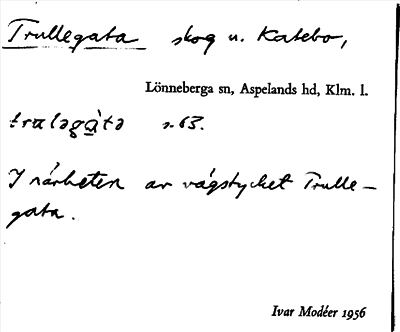 Trullegata skog u. Katebo,
Lönneberga sn, Aspelands hd, Klm. l.
tralǝgàtǝ s. 63.
I närheten av vägstycket Trulle-
gata.
Ivar Modéer 1956